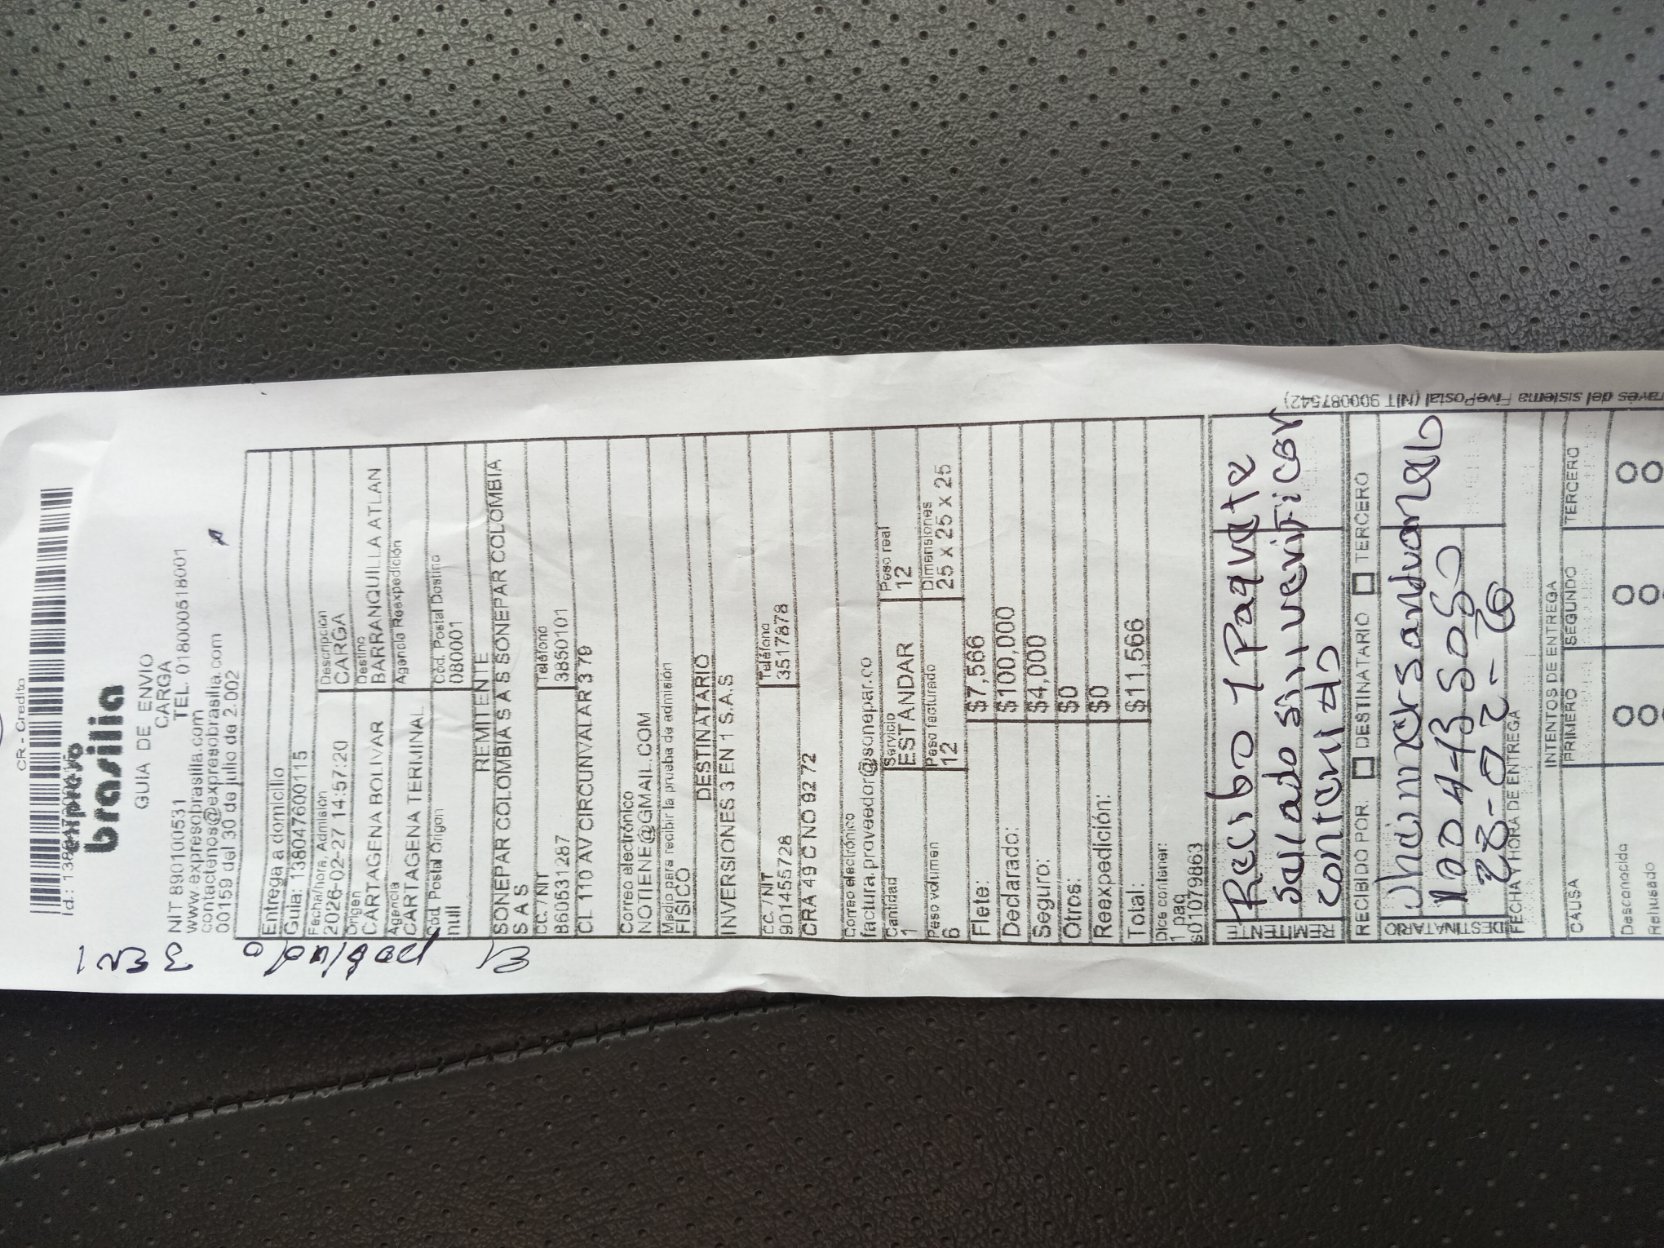 CR - Credito
expreso
brasilia
GUIA DE ENVIO
CARGA
NIT 890100531 TEL. 018000518001
www.expresobrasilia.com
contactenos@expresobrasilia.com
00159 del 30 de julio de 2.002
Entrega a domicilio
Guia: 138047600115
Fecha/hora. Admisión Descripción
2026-02-27 14:57:20 CARGA
Origen Destino
CARTAGENA BOLIVAR BARRANQUILLA ATLAN
Agencia Agencia Reexpedición
CARTAGENA TERMINAL
Cód. Postal Origen Cód. Postal Destino
null 080001
REMITENTE
SONEPAR COLOMBIA S A S SONEPAR COLOMBIA
S A S
CC. / NIT Teléfono
860531287 3850101
CL 110 AV CIRCUNVALAR 3 79
Correo electrónico
NOTIENE@GMAIL.COM
Medio para recibir la prueba de admisión
FISICO
DESTINATARIO
INVERSIONES 3 EN 1 S.A.S
CC. / NIT Teléfono
901455728 3517878
CRA 49 C NO 92 72
Correo electrónico
factura.proveedor@sonepar.co
Cantidad Servicio Peso real
1 ESTANDAR 12
Peso volumen Peso facturado Dimensiones
6 12 25 x 25 x 25
Flete: $7,566
Declarado: $100,000
Seguro: $4,000
Otros: $0
Reexpedición: $0
Total: $11,566
Dice contener:
1 paq
s01079863
REMITENTE
Recibo 1 Paquete
Sellado sin verificar
contenido
RECIBIDO POR: DESTINATARIO TERCERO
DESTINATARIO
28-02-26
FECHA Y HORA DE ENTREGA
INTENTOS DE ENTREGA
CAUSA PRIMERO SEGUNDO TERCERO
Desconocido
Rehusado
ravés del sistema FivePostal (NIT 900087542)